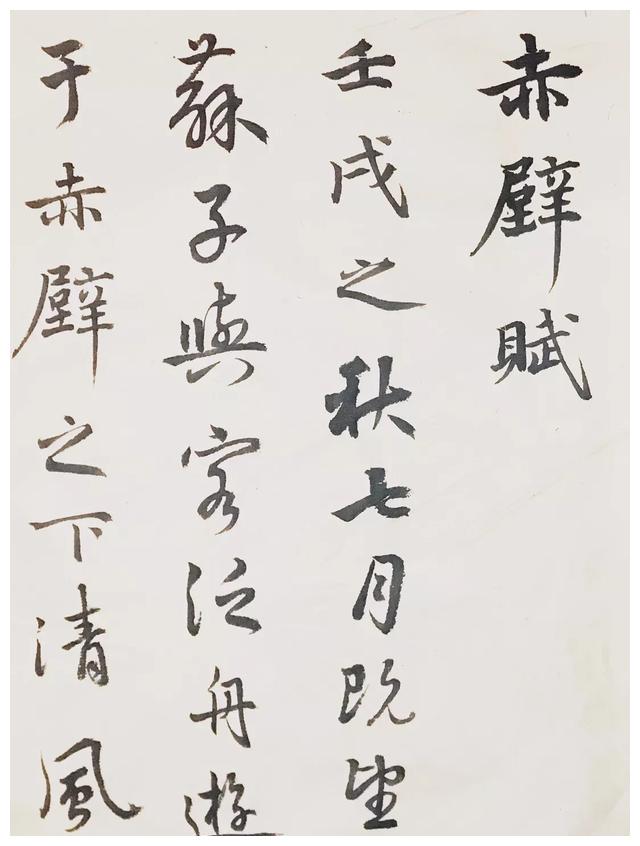 赤壁賦
壬戌之秋七月既望
蘇子與客泛舟遊
于赤壁之下清風